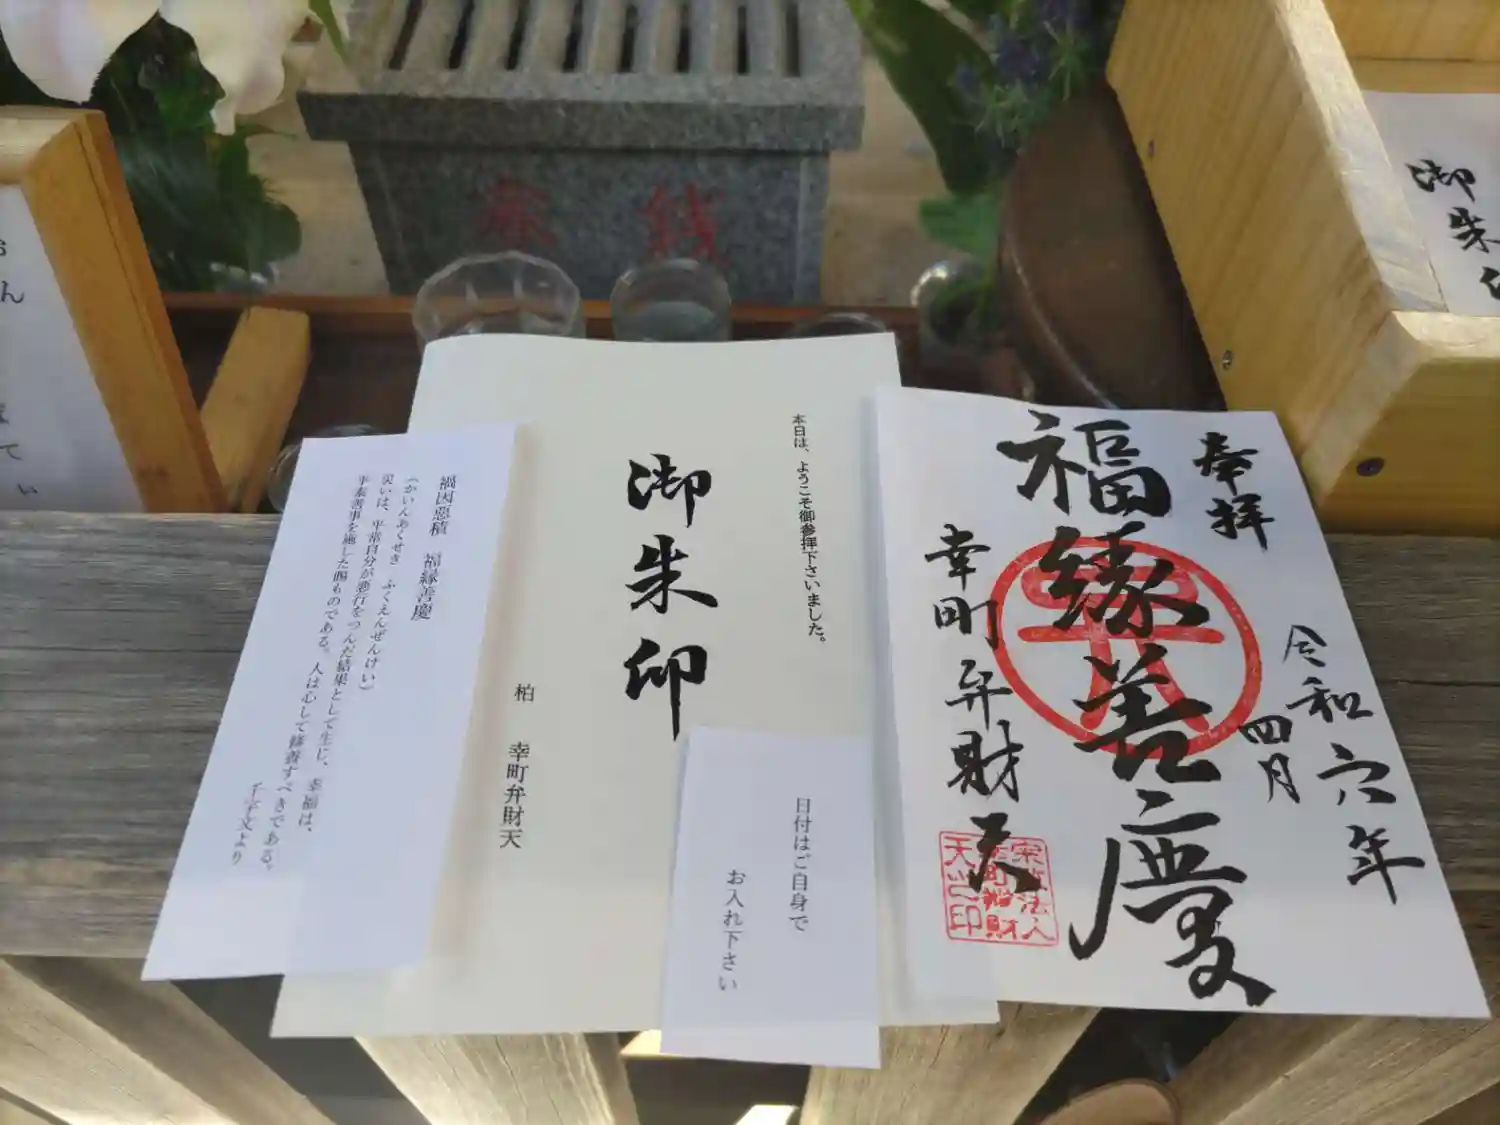 奉拝
福縁善慶
令和六年
四月
幸町弁財天
宗教法人
幸町辨財
天之印
本日は、ようこそ御参拝下さいました。
御朱印
柏 幸町弁財天
日付はご自身で
お入れ下さい
禍因惡積 福縁善慶
(かいんあくせき ふくえんぜんけい)
災いは、平常自分が悪行をつんだ結果として生じ、幸福は、
平素善事を施した賜ものである。人は心して修善すべきである。
千字文より
奉 銭
御朱印
おん